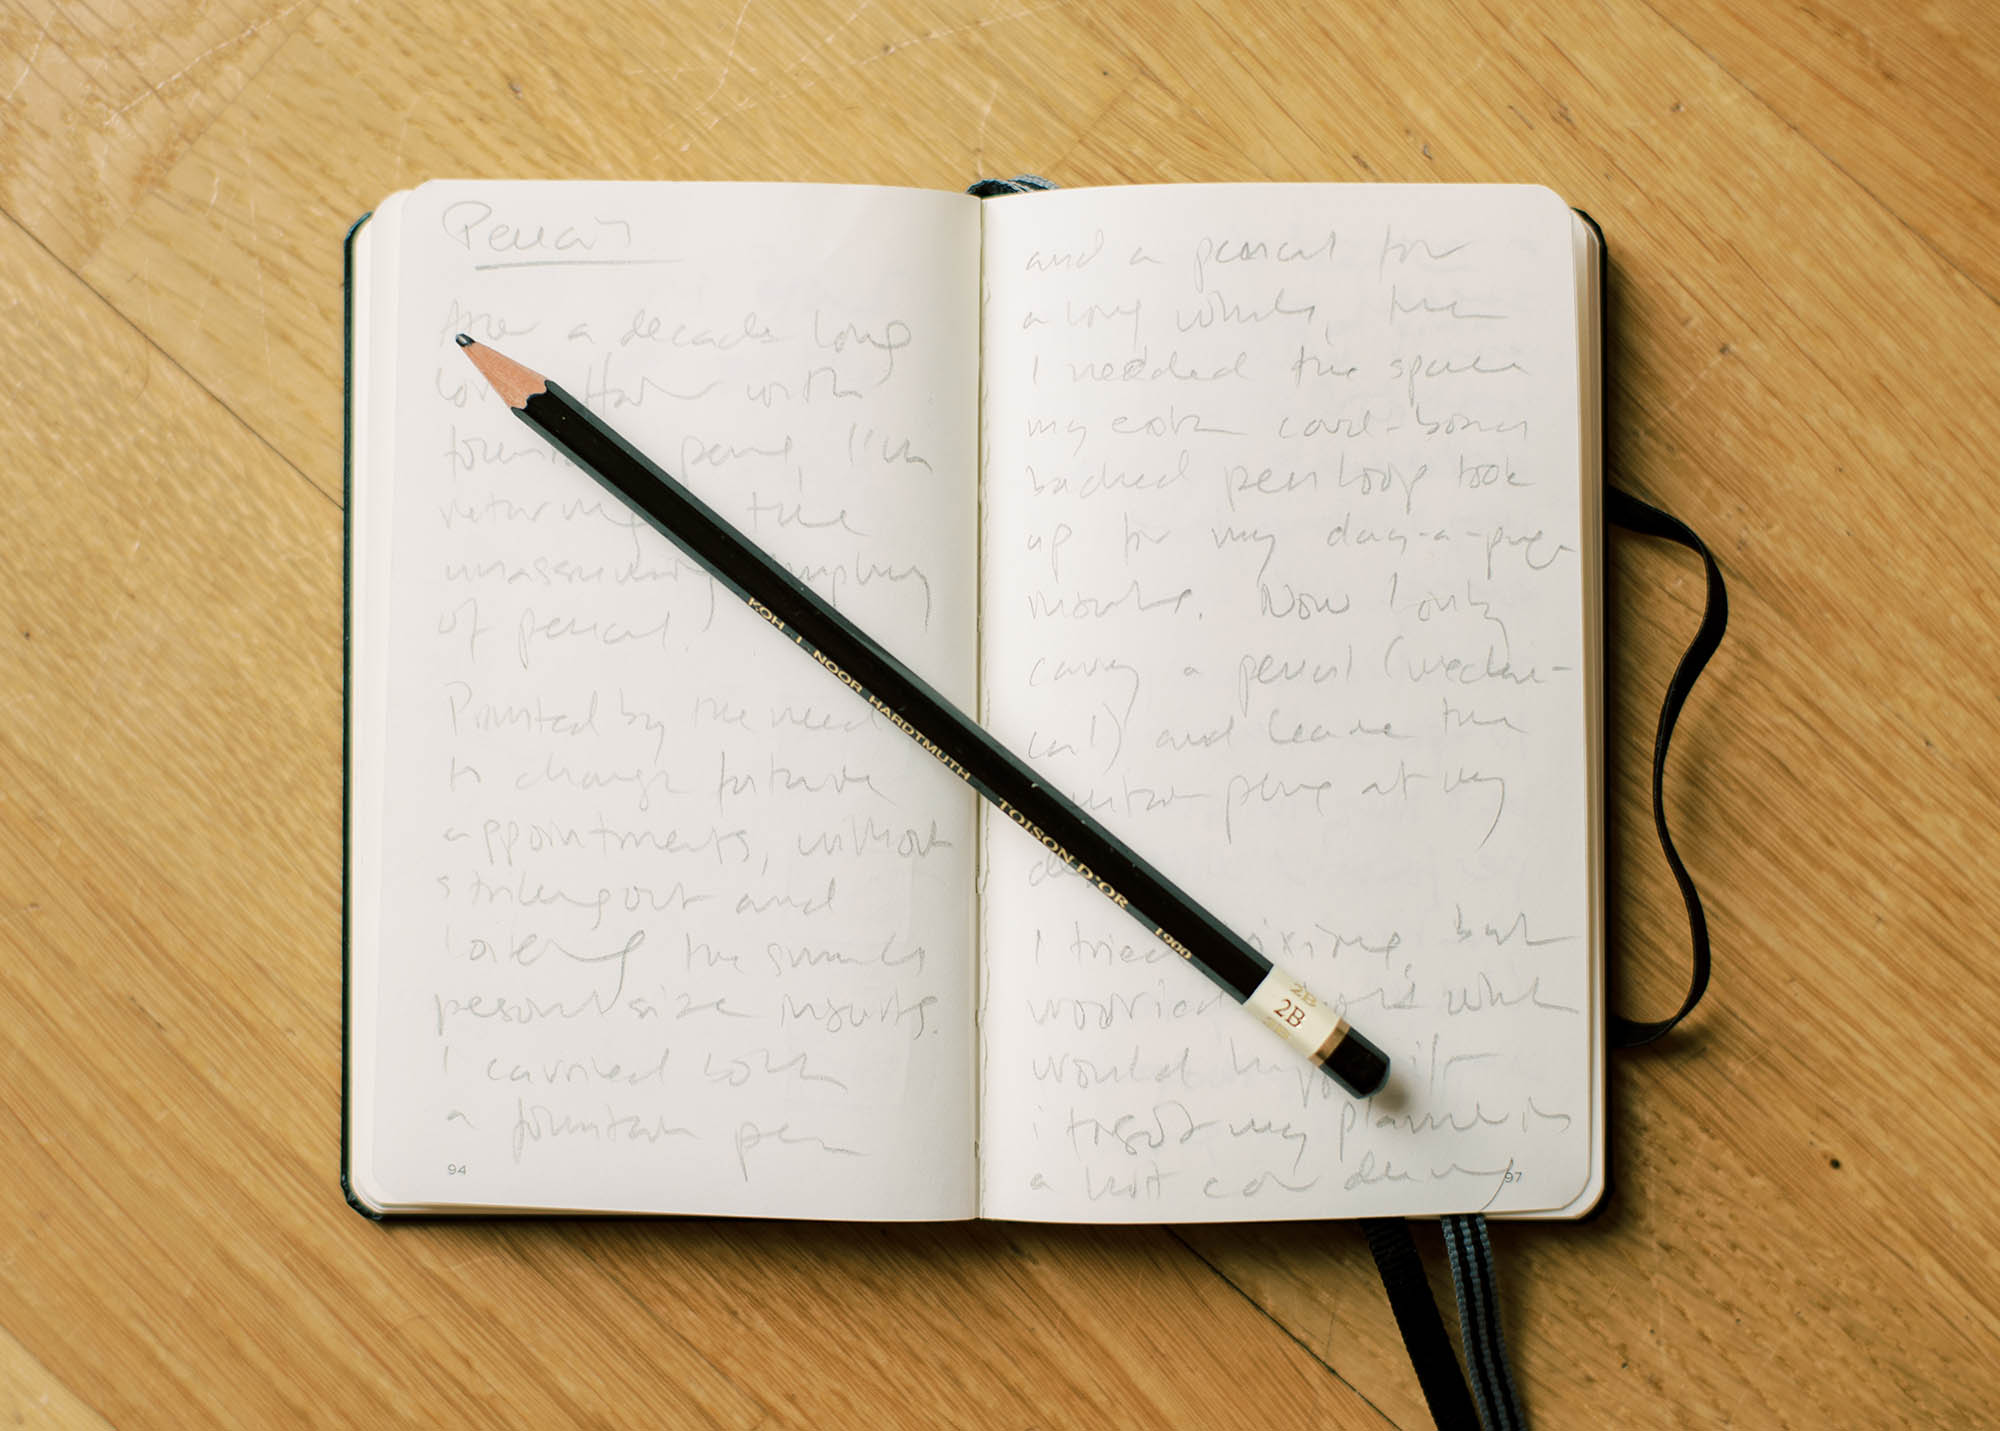 Pencils
After a decade long
love affair with
fountain pens, I'm
returning the
unassuming
of pencil.
Prompted by the need
to change future
appointments, without
striking out and
the small
personal size inserts.
I carried both
a fountain pen
94
and a pencil for
a long while, then
I needed the space
my card-
backed pen loop took
up for my day-a-page
inserts. Now I only
carry a pencil (mechani-
cal) and leave the
fountain pens at my
I tried but
worried what
would happen if
i forgot my planner in
a hot car
97
KOH-I-NOOR HARDTMUTH TOISON D'OR 1900
2B
2B